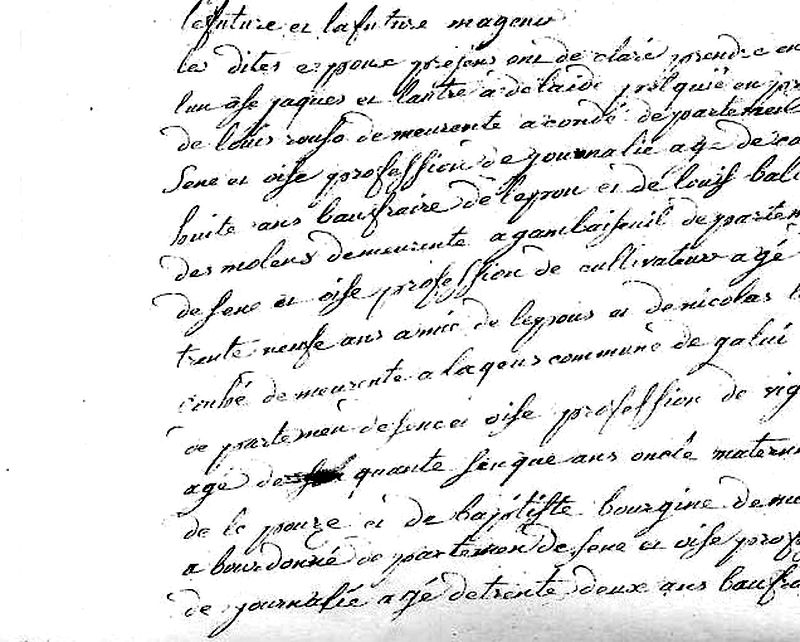 le future et la future mageur
les dites epoux presens ont de claré prendre en
lun ase jaques et lautre a delaide en pr
de louis rouso demeurente a condé departement
sene et oise profession de journalié agé de ca
huite ans baufraire de lepou et de louis bal
des molens demeurente a gambaiseuil departem
de sene et oise profession de cultivateur agé
trente neufe ans amie de lepous et de nicolas
demeurente a la commune de galui
de partemen de sene et oise profession de vig
agé de quante senque ans oncle matern
de le pouze et de baptiste bourgine demeu
a bourdonné de partemen de sene et oise prof
de journalié agé de trente deux ans baufra